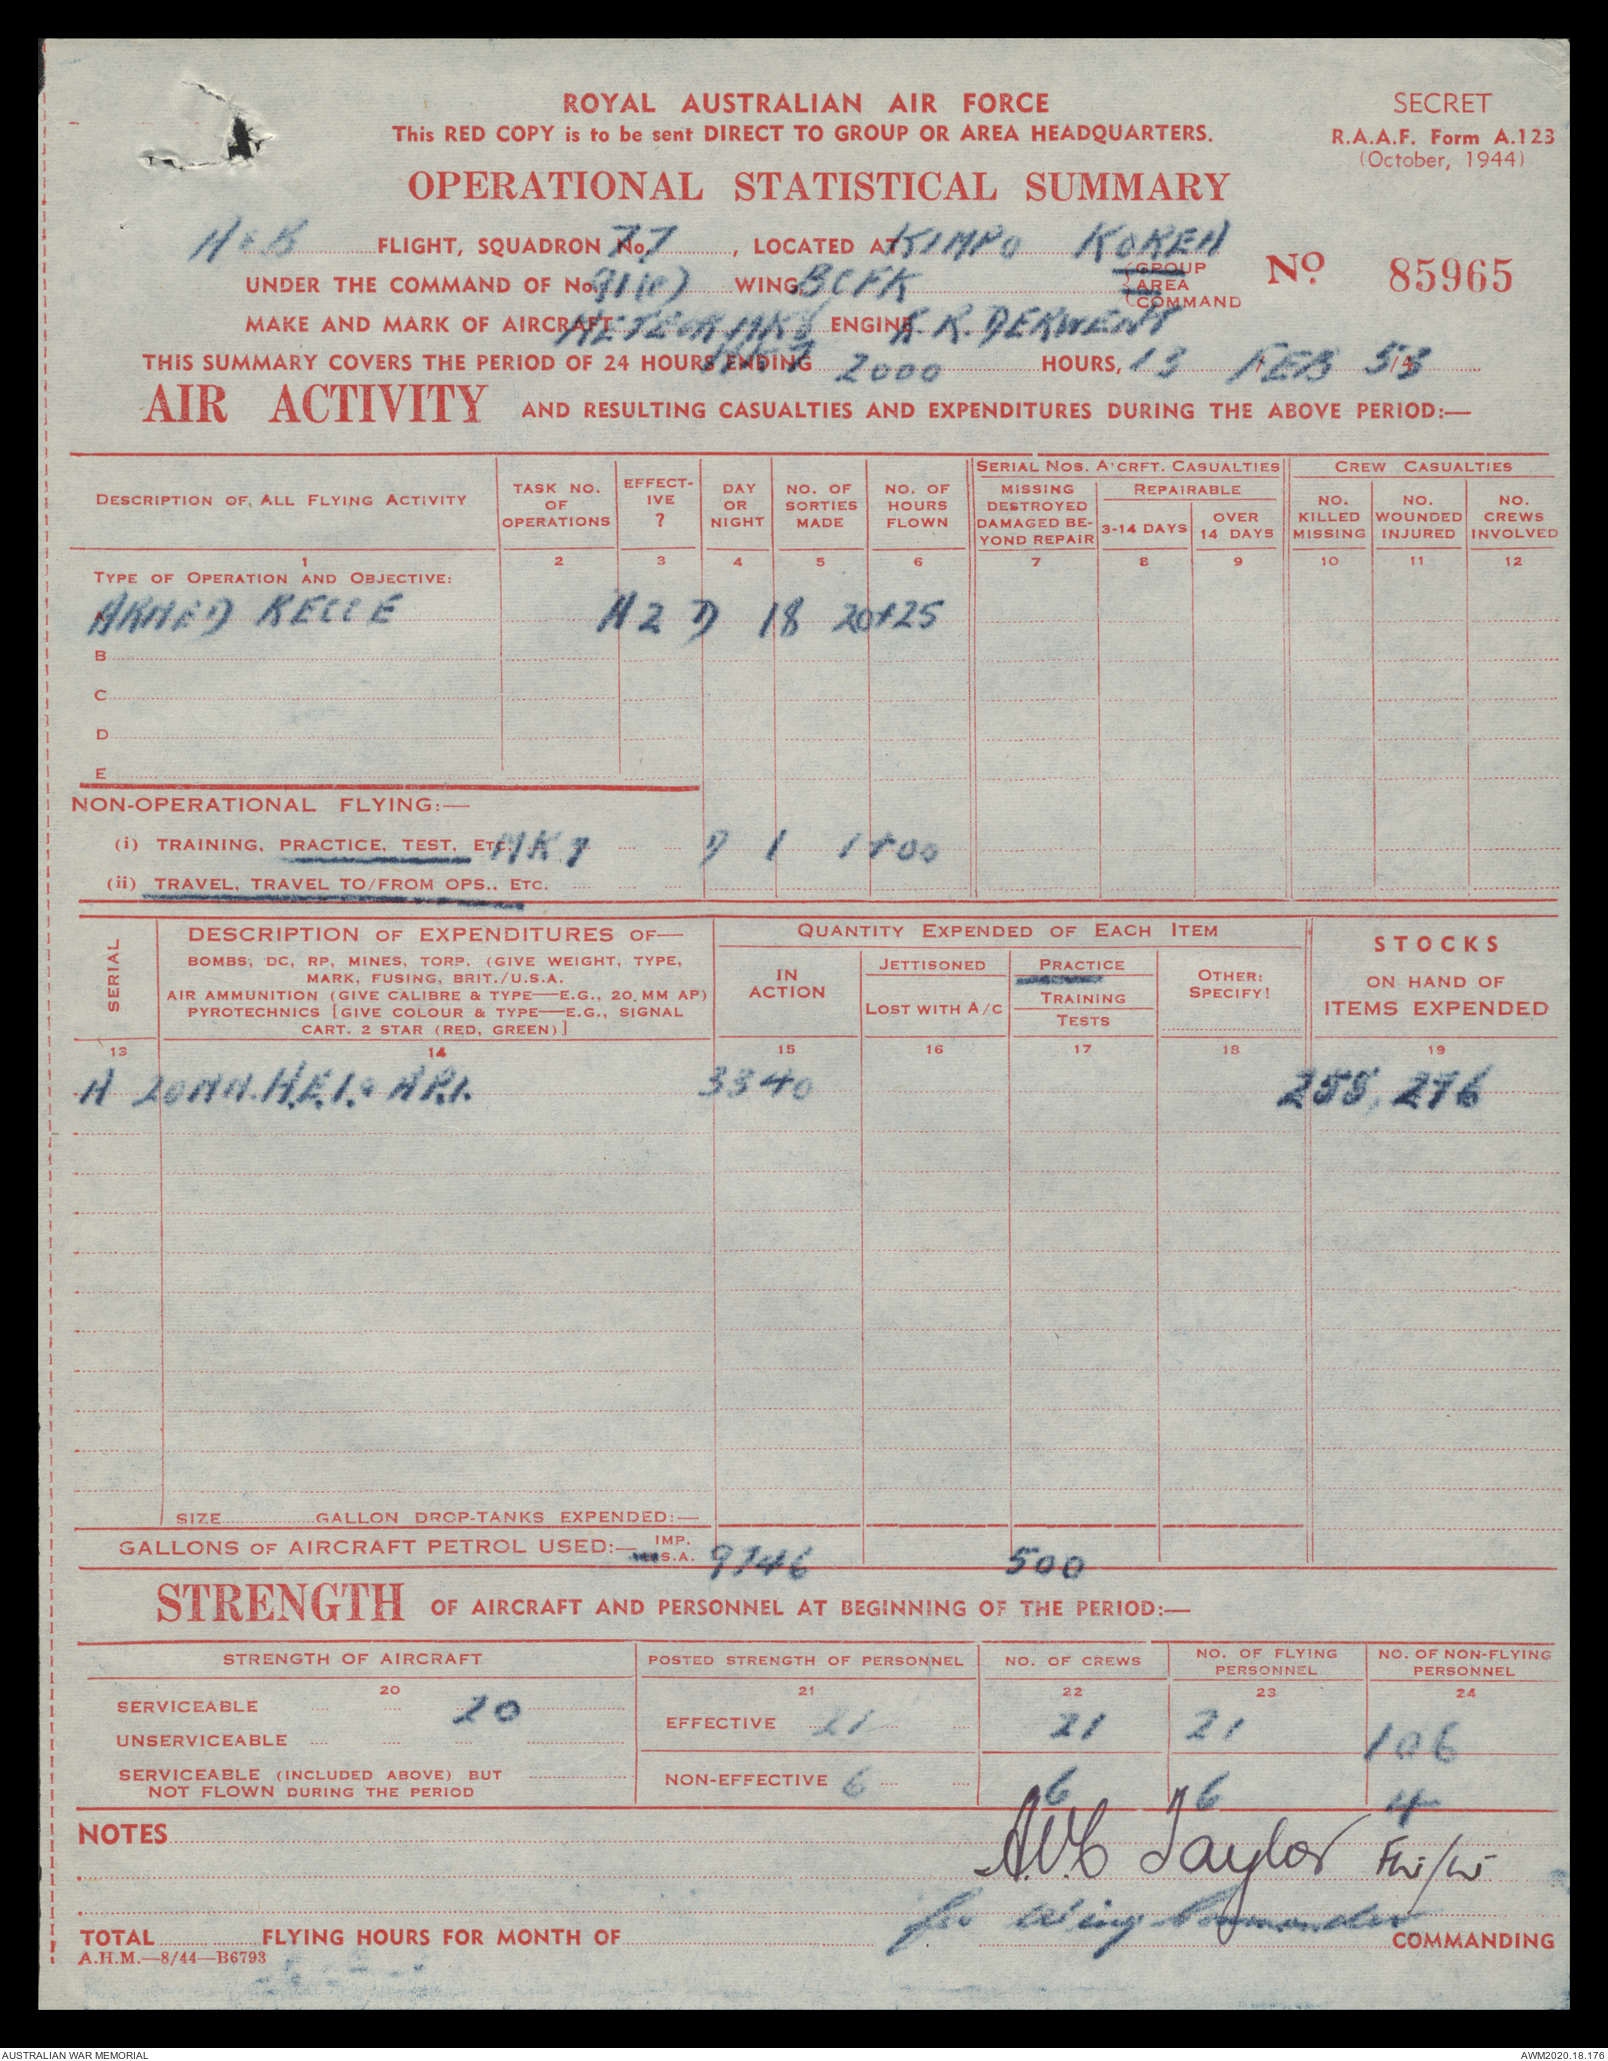 ROYAL AUSTRALIAN AIR FORCE
SECRET
This RED COPY is to be sent DIRECT TO GROUP OR AREA HEADQUARTERS.
R.A.A.F. Form A.123
(October, 1944)
OPERATIONAL STATISTICAL SUMMARY
A & B FLIGHT, SQUADRON No. 77, LOCATED AT KIMPO KOREA
UNDER THE COMMAND OF No. 91(C) WING, BCFK {GROUP AREA COMMAND
No 85965
MAKE AND MARK OF AIRCRAFT METEOR MK8 ENGINE R.R. DERWENT
MK 7
THIS SUMMARY COVERS THE PERIOD OF 24 HOURS ENDING 2000 HOURS, 13 FEB 53
AIR ACTIVITY AND RESULTING CASUALTIES AND EXPENDITURES DURING THE ABOVE PERIOD:—
DESCRIPTION OF ALL FLYING ACTIVITY
TASK NO. OF OPERATIONS
EFFECTIVE ?
DAY OR NIGHT
NO. OF SORTIES MADE
NO. OF HOURS FLOWN
SERIAL NOS. A'CRFT. CASUALTIES
MISSING DESTROYED DAMAGED BEYOND REPAIR
REPAIRABLE
3-14 DAYS
OVER 14 DAYS
CREW CASUALTIES
NO. KILLED MISSING
NO. WOUNDED INJURED
NO. CREWS INVOLVED
1 2 3 4 5 6 7 8 9 10 11 12
TYPE OF OPERATION AND OBJECTIVE:
ARMED RECCE A2 D 18 20+25
B
C
D
E
NON-OPERATIONAL FLYING:—
(i) TRAINING, PRACTICE, TEST, ETC. MK 7 D 1 1+00
(ii) TRAVEL, TRAVEL TO/FROM OPS., ETC.
SERIAL
DESCRIPTION OF EXPENDITURES OF—
BOMBS, DC, RP, MINES, TORP. (GIVE WEIGHT, TYPE,
MARK, FUSING, BRIT./U.S.A.
AIR AMMUNITION (GIVE CALIBRE & TYPE—E.G., 20 MM AP)
PYROTECHNICS [GIVE COLOUR & TYPE—E.G., SIGNAL
CART. 2 STAR (RED, GREEN)]
QUANTITY EXPENDED OF EACH ITEM
IN ACTION
JETTISONED
LOST WITH A/C
PRACTICE
TRAINING
TESTS
OTHER: SPECIFY!
STOCKS
ON HAND OF
ITEMS EXPENDED
13 14 15 16 17 18 19
A 20MM. H.E.I. & A.P.I. 3340 255,276
SIZE GALLON DROP-TANKS EXPENDED:—
GALLONS OF AIRCRAFT PETROL USED:— IMP. S.A. 9746 500
STRENGTH OF AIRCRAFT AND PERSONNEL AT BEGINNING OF THE PERIOD:—
STRENGTH OF AIRCRAFT
POSTED STRENGTH OF PERSONNEL
NO. OF CREWS
NO. OF FLYING PERSONNEL
NO. OF NON-FLYING PERSONNEL
20 21 22 23 24
SERVICEABLE 20
EFFECTIVE 21 21 21 106
UNSERVICEABLE
SERVICEABLE (INCLUDED ABOVE) BUT
NOT FLOWN DURING THE PERIOD
NON-EFFECTIVE 6 6 6 4
NOTES
A.V.C Taylor Flt/Lt
for Wing Commander
TOTAL FLYING HOURS FOR MONTH OF COMMANDING
A.H.M.—8/44—B6793
AUSTRALIAN WAR MEMORIAL
AWM2020.18.176